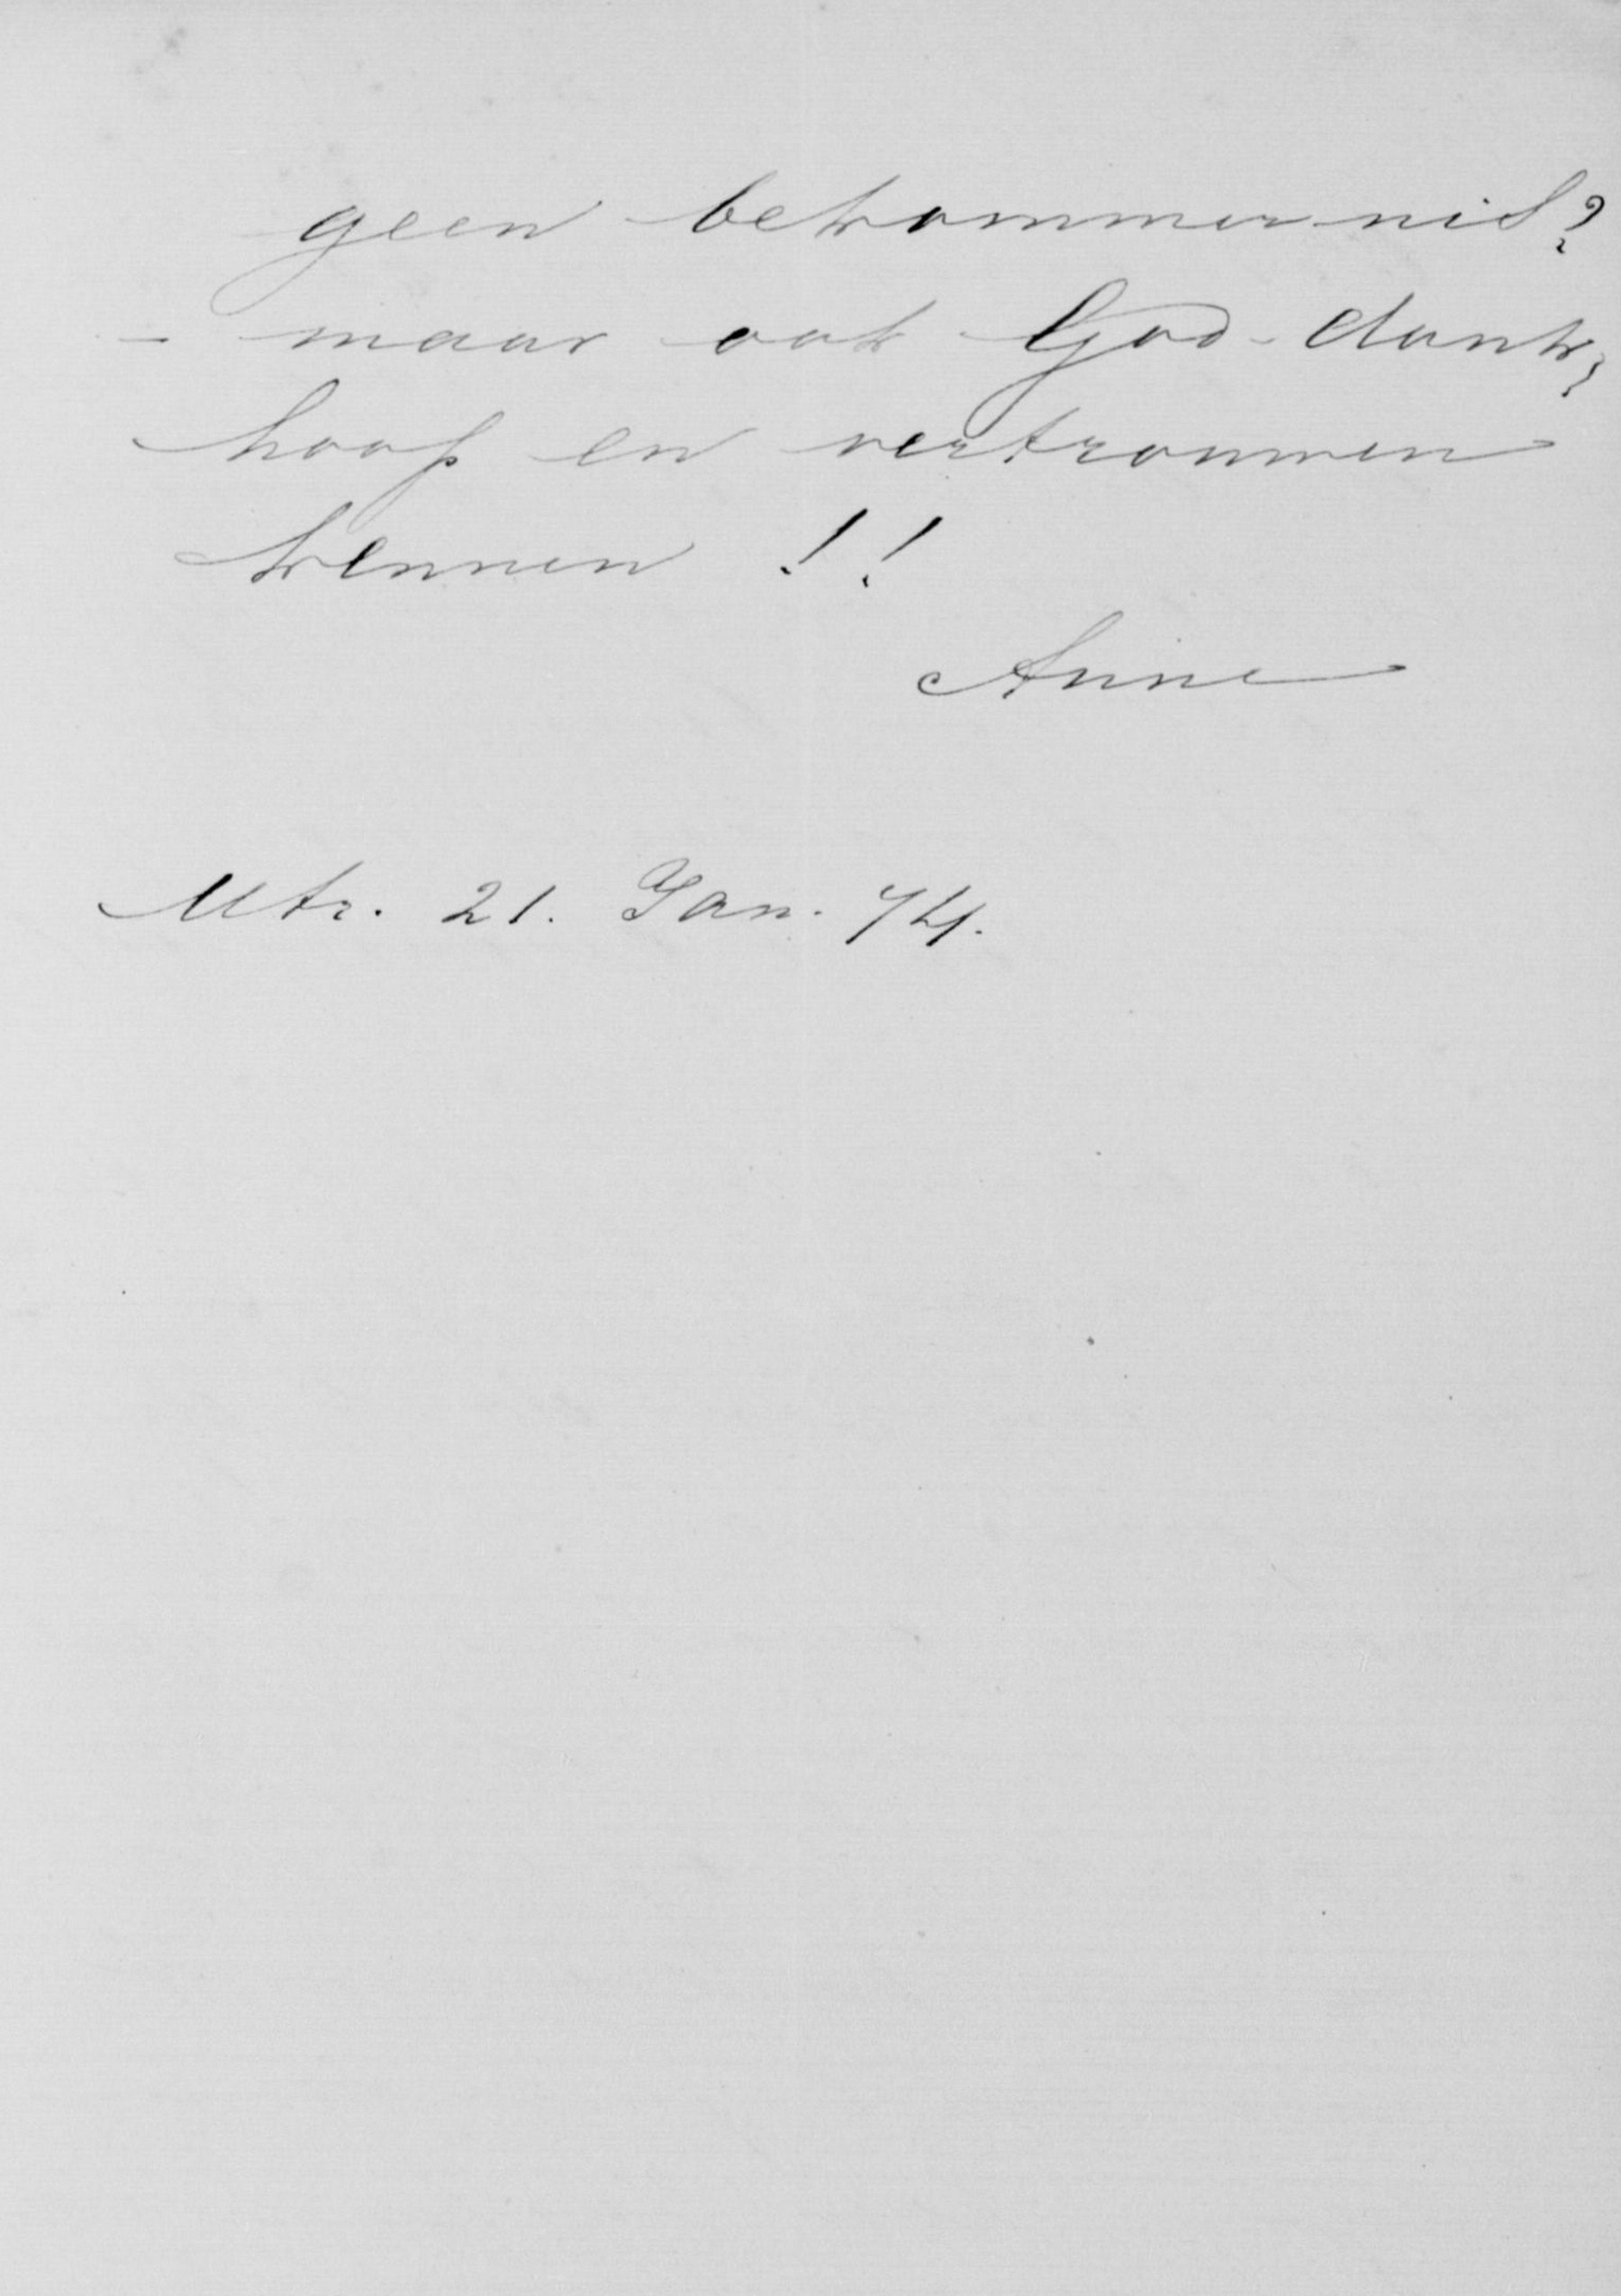 geen bekommernis?
- maar ook God dank,
hoop en vertrouwen
kennen !!
Anne
Utr. 21. Jan. 74.